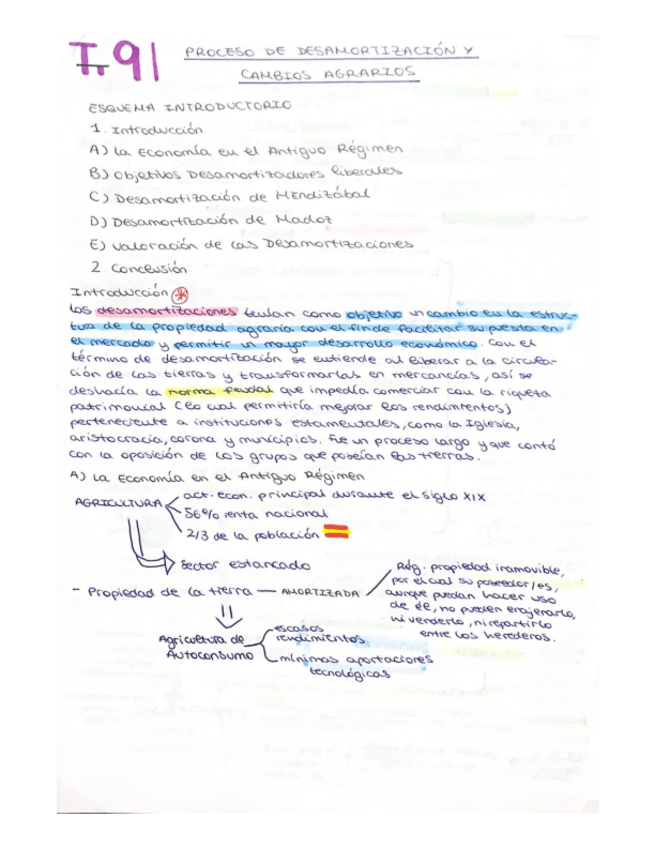 T.9|
PROCESO DE DESAMORTIZACIÓN Y
CAMBIOS AGRARIOS
ESQUEMA INTRODUCTORIO
1. Introducción
A) La Economía en el Antiguo Régimen
B) Objetivos Desamortizadores liberales
C) Desamortización de Mendizábal
D) Desamortización de Madoz
E) Valoración de las Desamortizaciones
2. Conclusión
Introducción *
Las desamortizaciones tenían como objetivo un cambio en la estruc-
tura de la propiedad agraria con el fin de facilitar su puesta en
el mercado y permitir un mayor desarrollo económico. Con el
término de desamortización se entiende al liberar a la circula-
ción de las tierras y transformarlas en mercancías, así se
deshacía la norma feudal que impedía comerciar con la riqueza
patrimonial (lo cual permitiría mejorar los rendimientos)
perteneciente a instituciones estamentales, como la Iglesia,
aristocracia, corona y municipios. Fue un proceso largo y que contó
con la oposición de los grupos que poseían las tierras.
A) La Economía en el Antiguo Régimen
AGRICULTURA
act. econ. principal durante el siglo XIX
56% renta nacional
2/3 de la población
Sector estancado
- Propiedad de la tierra — AMORTIZADA
Rég. propiedad inamovible,
por el cual su poseedor/es,
aunque puedan hacer uso
de él, no pueden enajenarlo,
ni venderlo, ni repartirlo
entre los herederos.
Agricultura de
Autoconsumo
escasos
rendimientos
mínimas aportaciones
tecnológicas